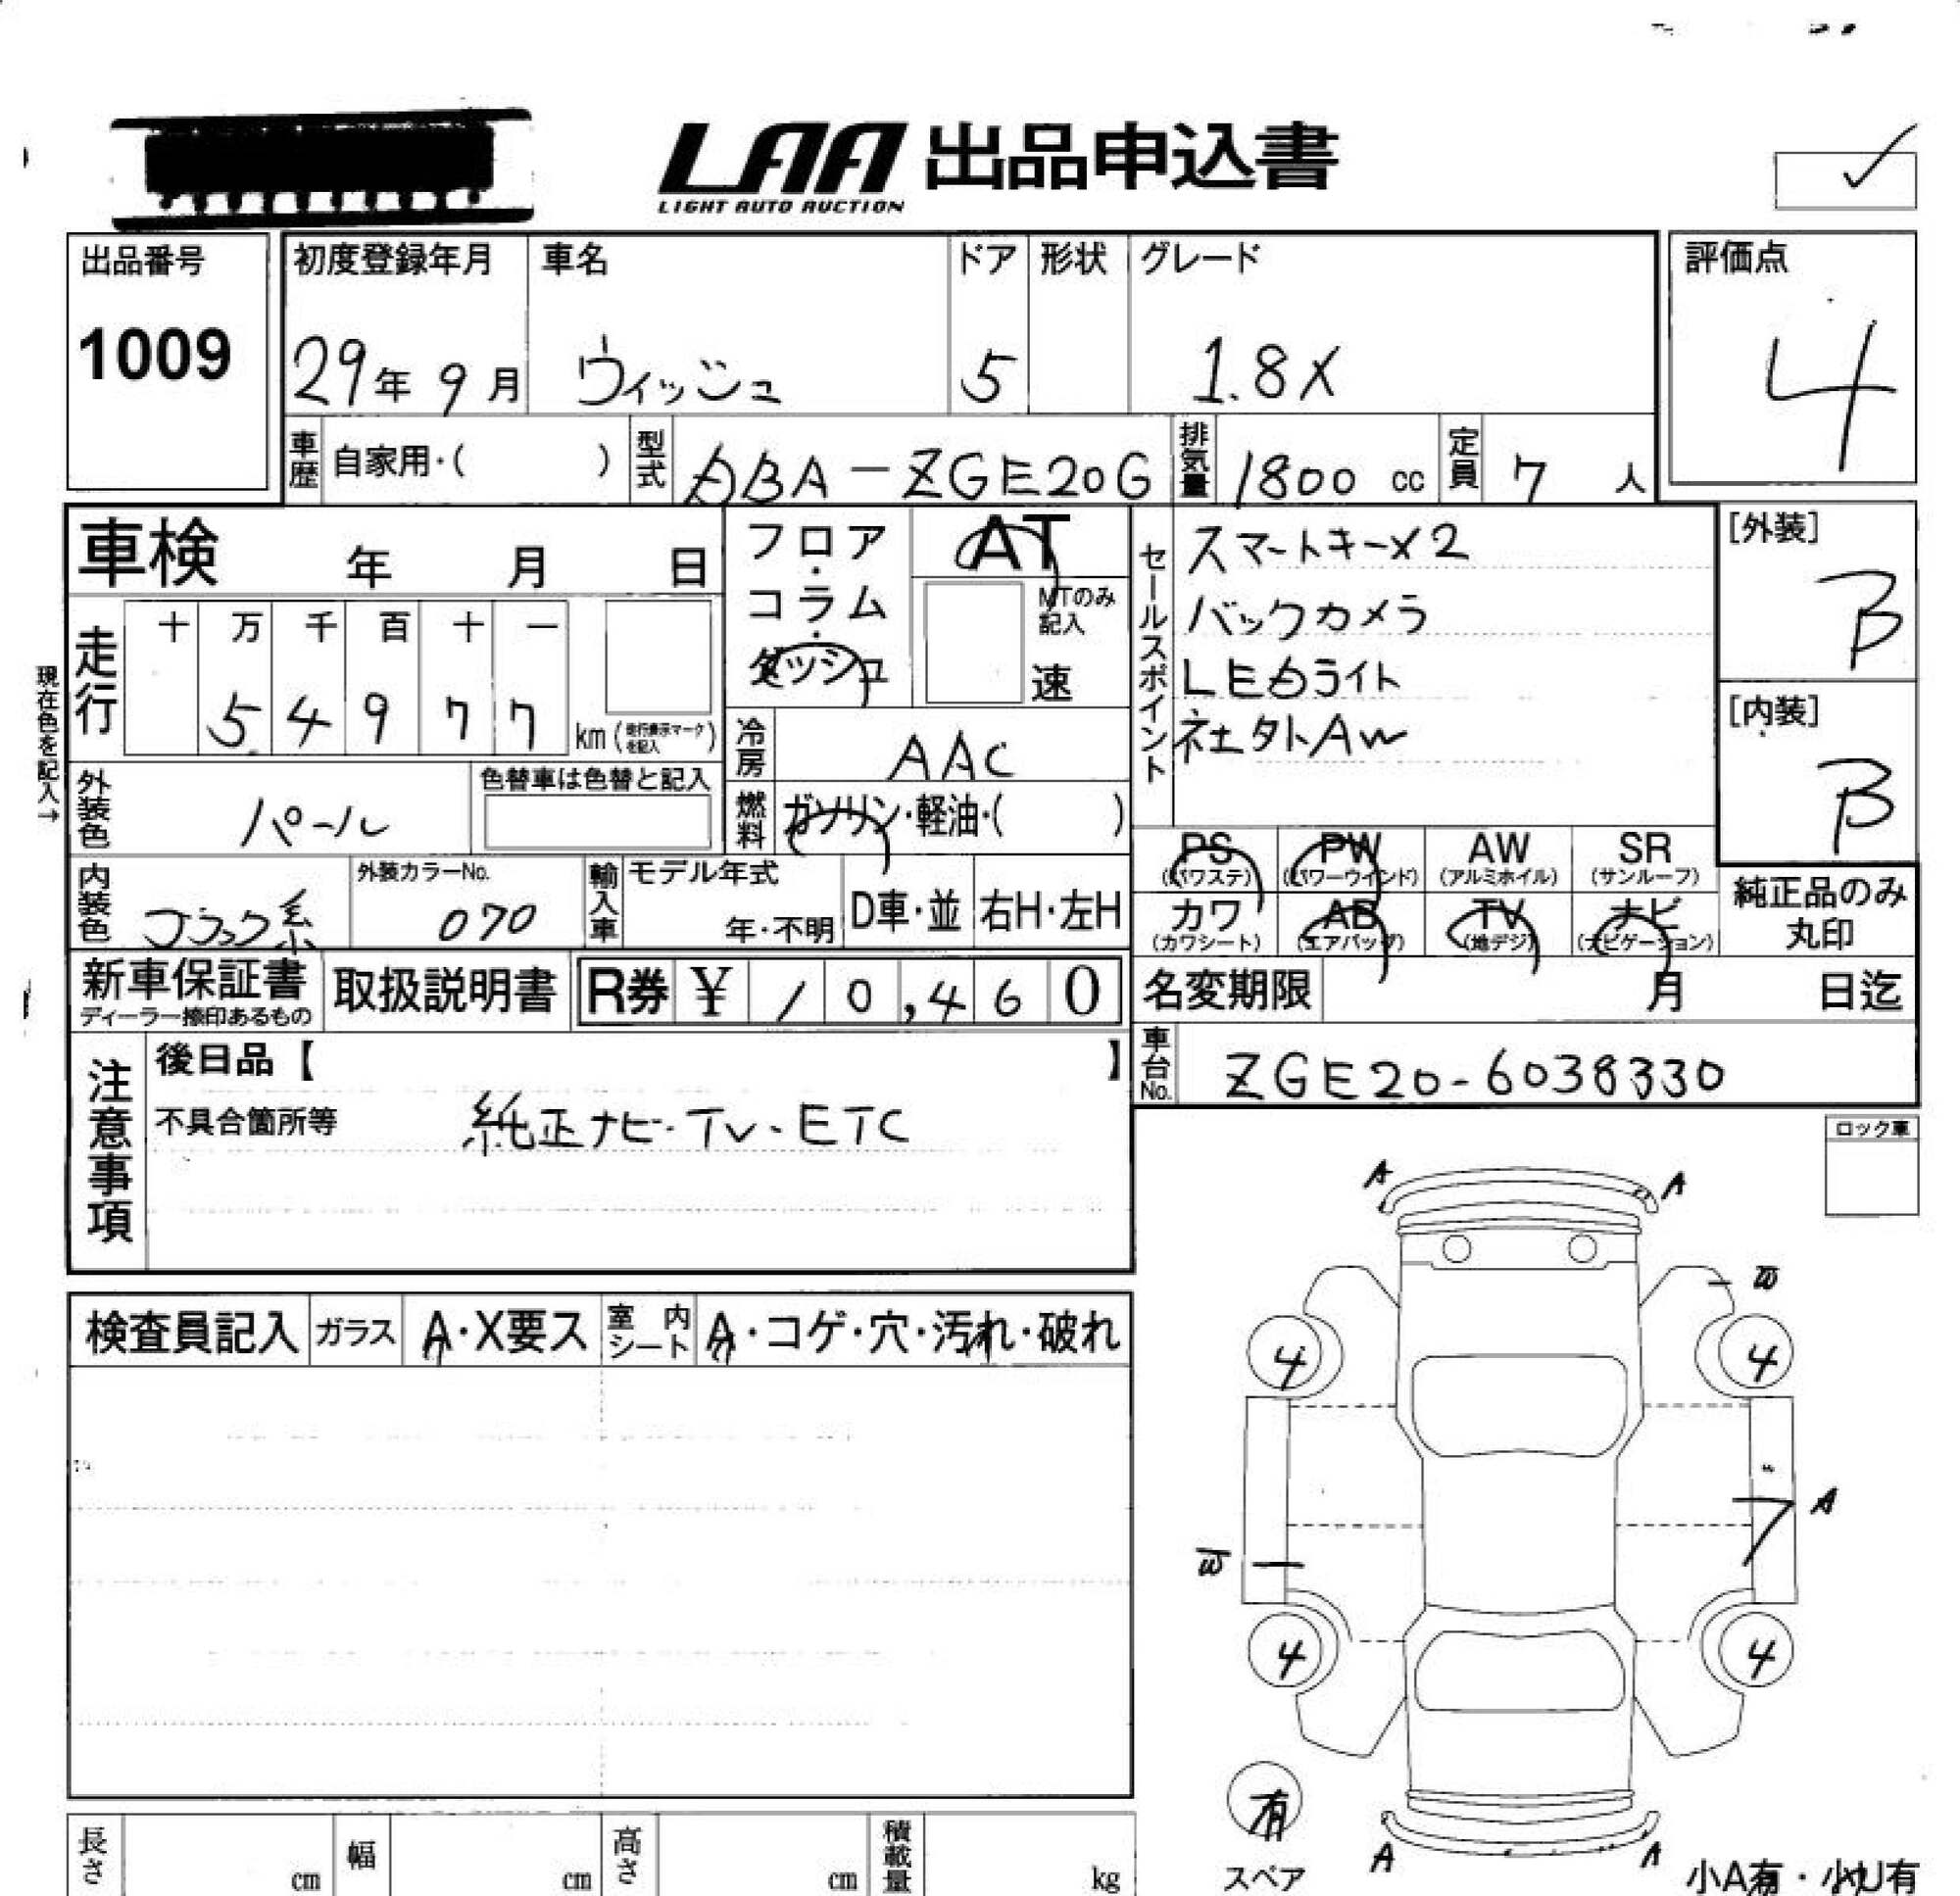 LAA 出品申込書
LIGHT AUTO AUCTION
出品番号 初度登録年月 車名 ドア 形状 グレード 評価点
1009 29年 9月 ウィッシュ 5 1.8X 4
車歴 自家用・( ) 型式 DBA-ZGE20G 排気量 1800 cc 定員 7 人
車検 年 月 日
フロア・コラム・ダッシュ
AT
MTのみ記入
速
セールスポイント
スマートキーX2
バックカメラ
LEDライト
社外AW
[外装]
B
[内装]
B
現在色を記入→
走行 十 万 千 百 十 一
5 4 9 7 7 km (走行表示マークを記入)
冷房 AAC
外装色 パール 色替車は色替と記入
燃料 ガソリン・軽油・( )
PS (パワステ) PW (パワーウインド) AW (アルミホイル) SR (サンルーフ)
カワ (カワシート) AB (エアバッグ) TV (地デジ) ナビ (ナビゲーション)
純正品のみ
丸印
内装色 ブラック系 外装カラーNo. 070 輸入車 モデル年式 年・不明 D車・並 右H・左H
新車保証書 取扱説明書 R券 ¥ 10,460
ディーラー捺印あるもの
名変期限 月 日迄
車台No. ZGE20-6038330
注意事項
後日品【 】
不具合箇所等 純正ナビ・TV・ETC
ロック車
A A
W
4 4
A
W
4 4
検査員記入 ガラス A・X要ス 室内シート A・コゲ・穴・汚れ・破れ
有
スペア
A A
小A有・小U有
長さ cm 幅 cm 高さ cm 積載量 kg